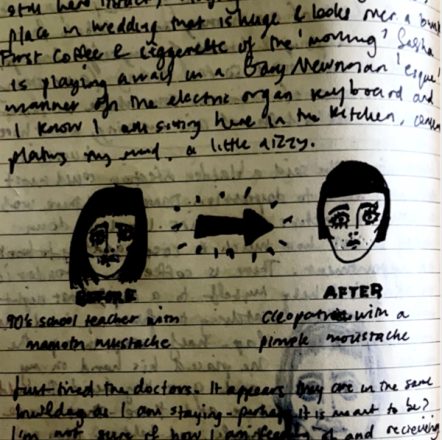 place in wedding that is huge & looks over a
First coffee & ciggerette of the 'morning' Sasha
is playing away in a Gary Newman 'esque
manner on the electric organ keyboard and
I know I am sitting here in the kitchen,
my mind, a little dizzy.
BEFORE
AFTER
90's school teacher with
mustache
cleopatra with a
pimple moustache
Just tried the doctors. It appears they are in the same
building as I am staying - perhaps it is meant to be?
I'm not sure if how I am and recieving